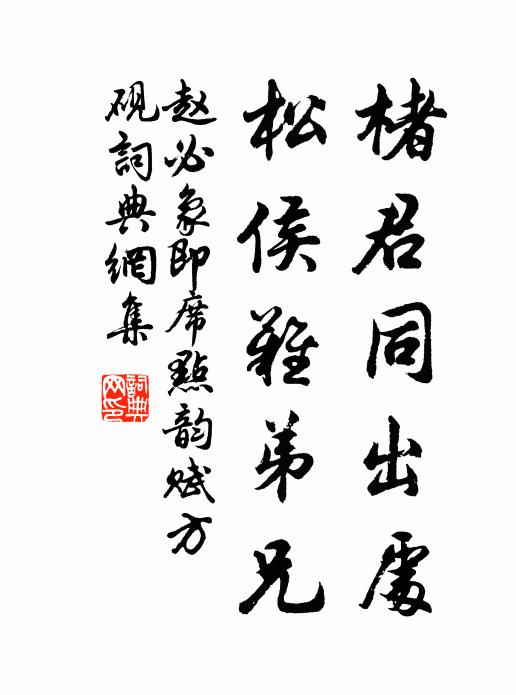 楮君同出處
松侯難弟兄
赵必象即席㸃韵赋方
砚詞典網集
詞典网印